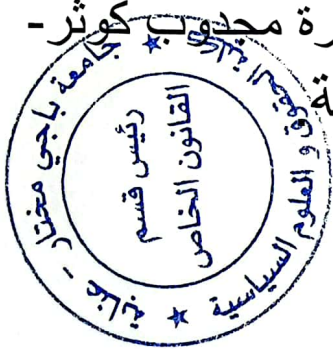 رة مجدوب كوثر-
ة
جامعة باجي مختار - عنابة
كلية الحقوق و العلوم السياسية
رئيس قسم
القانون الخاص